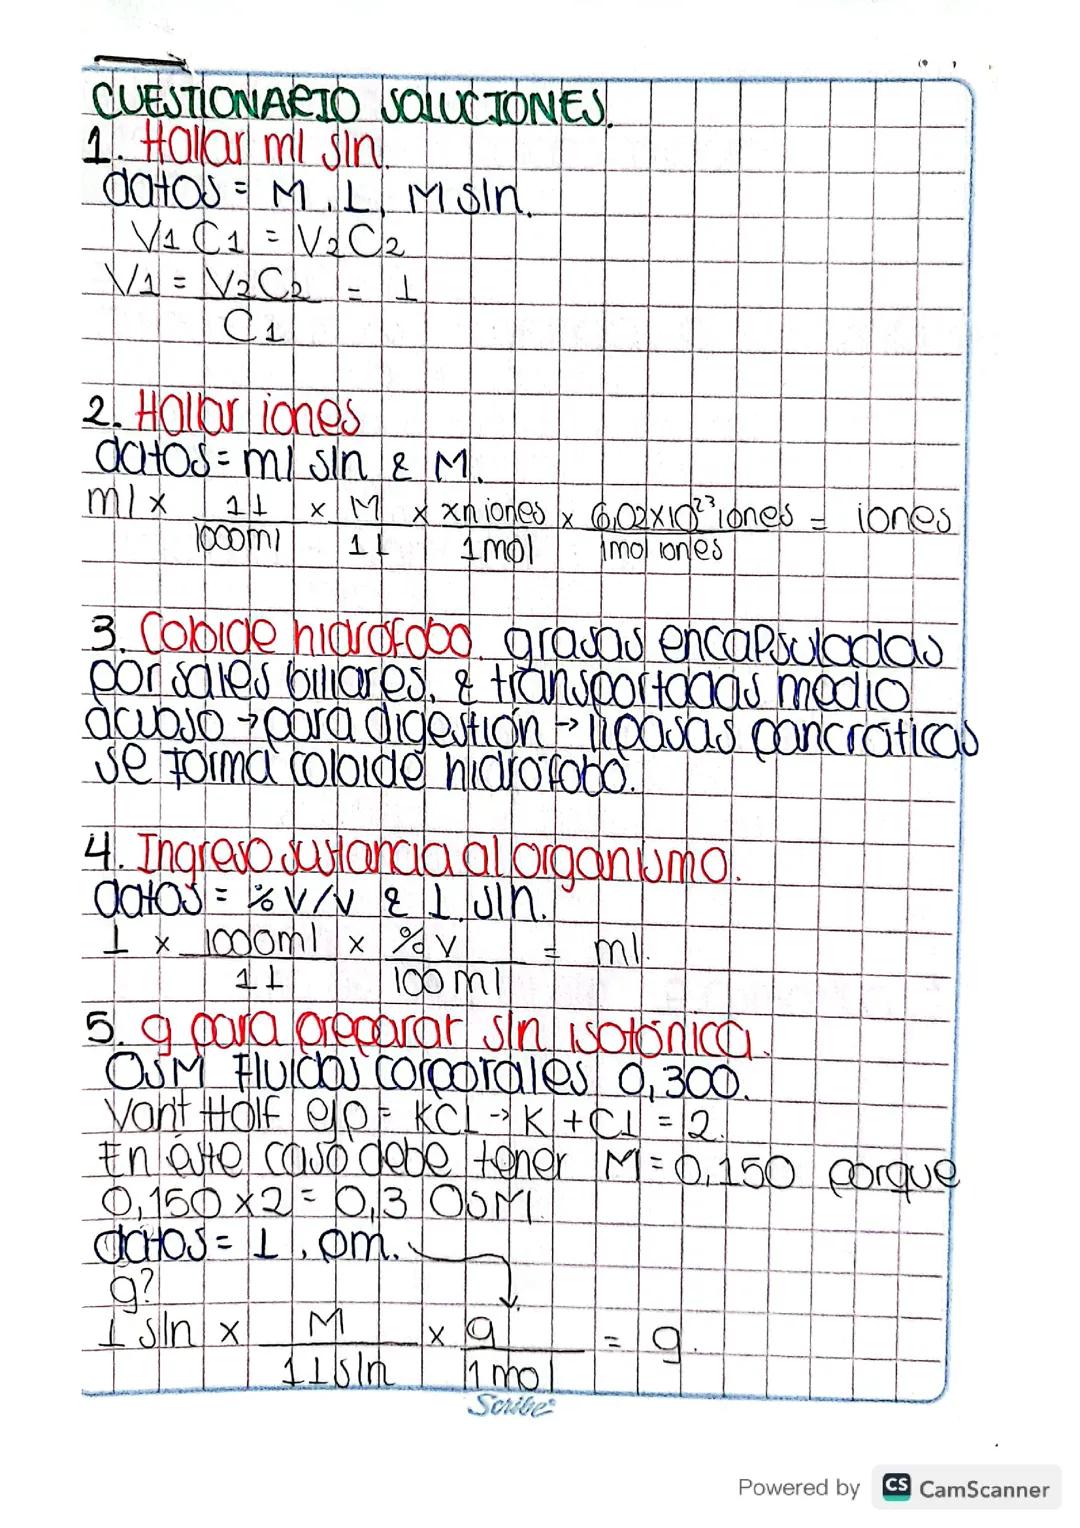 CUESTIONARIO SOLUCIONES.
1. Hallar ml sln.
datos = M, L, M sln.
V1 C1 = V2 C2
V1 = V2C2 = L
C1
2. Hallar iones
datos = ml sln & M.
ml x 1L x M x xn iones x 6,02x10²³ iones = iones
1000ml 1L 1mol 1mol iones
3. Coloide hidrófobo. grasas encapsuladas
por sales biliares, & transportadas medio
acuoso → para digestión → lipasas pancráticas
se forma coloide hidrófobo.
4. Ingreso sustancia al organismo.
datos = % V/V & L. sln.
L x 1000ml x % V = ml.
1L 100 ml
5. g para preparar sln isotónica.
OSM Fluidos corporales 0,300.
Vant Half ejp = KCL → K + CL = 2.
En éste caso debe tener M = 0,150 porque
0,150 x 2 = 0,3 OSM.
datos = L, pm.
g?
L sln x M x g = g.
1L sln 1 mol
Scribe
Powered by CS CamScanner